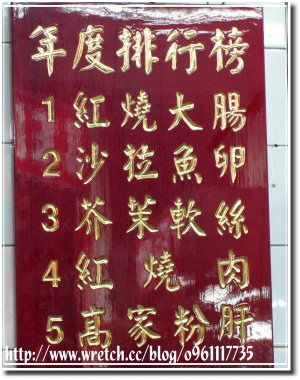 年度排行榜
1 紅燒大腸
2 沙拉魚卵
3 芥茉軟絲
4 紅燒肉
5 高家粉肝
http://www.wretch.cc/blog/o961117735